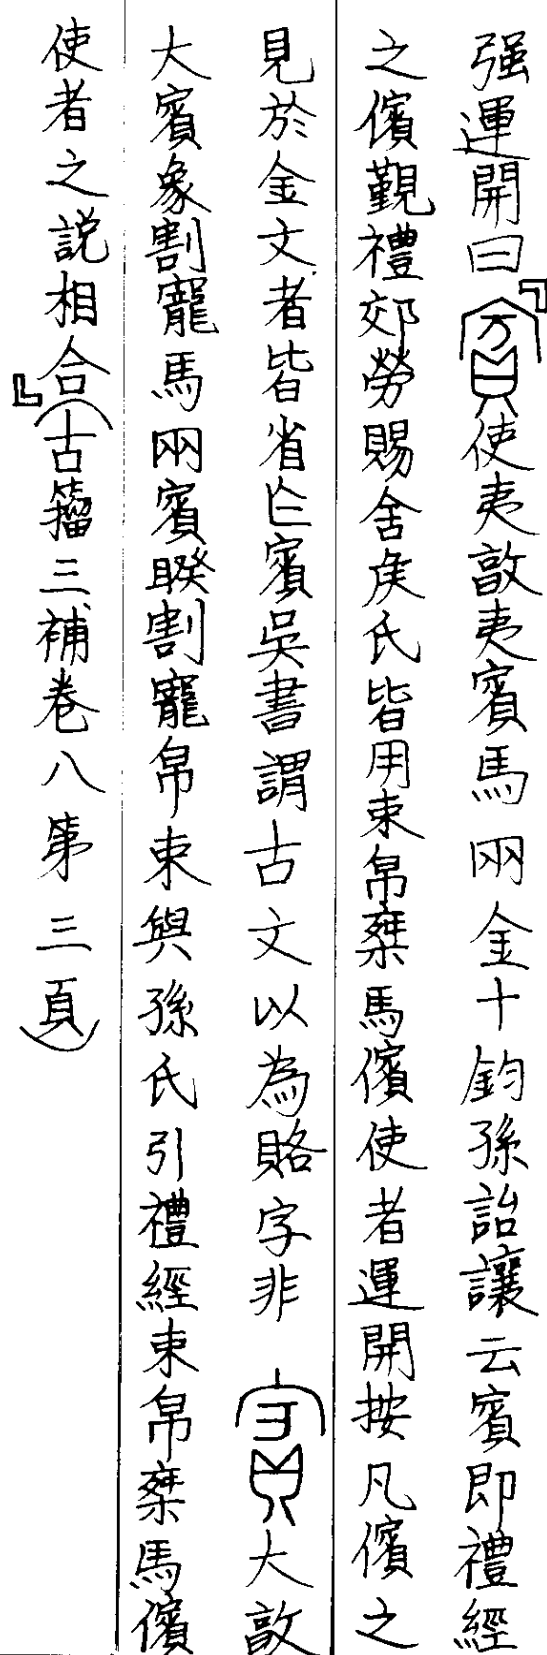 强運開曰『使夷敦夷賓馬兩金十鈞孫詒讓云賓即禮經
之儐覲禮郊勞賜舍矦氏皆用束帛椉馬儐使者運開按凡儐之
見於金文者皆省亻賓吳書謂古文以為賂字非大敦
大賓豖割寵馬兩賓睽割寵帛束與孫氏引禮經束帛椉馬儐
使者之説相合』(古籀三補卷八第三頁)